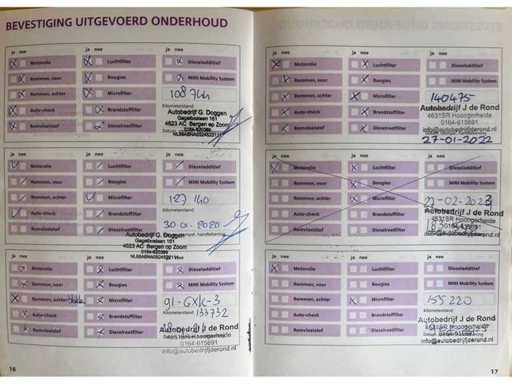 BEVESTIGING UITGEVOERD ONDERHOUD
ja nee ja nee ja nee
Motorolie Luchtfilter Dieseladditief
Remmen, voor Bougies MINI Mobility System
Remmen, achter Microfilter
Auto-check Brandstoffilter
Remvloeistof Dieselroetfilter
Kilometerstand
Autobedrijf G. Doggen
4623 AC Bergen op Zoom
ja nee ja nee ja nee
Motorolie Luchtfilter Dieseladditief
Remmen, voor Bougies MINI Mobility System
Remmen, achter Microfilter
127 140
Auto-check Brandstoffilter
Kilometerstand
Remvloeistof Dieselroetfilter
Autobedrijf G. Doggen
4623 AC Bergen op Zoom
ja nee ja nee ja nee
Motorolie Luchtfilter Dieseladditief
Remmen, voor Bougies MINI Mobility System
Remmen, achter Microfilter
133732
Auto-check Brandstoffilter
Autobedrijf J de Rond
Remvloeistof Dieselroetfilter
0164-615891
info@autobedrijfjderond.nl
16
ja nee ja nee ja nee
Motorolie Luchtfilter Dieseladditief
Remmen, voor Bougies MINI Mobility System
Remmen, achter Microfilter
140475
Auto-check Brandstoffilter
Autobedrijf J de Rond
4631SR Hoogerheide
Remvloeistof Dieselroetfilter
0164-615891
info@autobedrijfjderond.nl
27-01-2022
ja nee ja nee ja nee
Motorolie Luchtfilter Dieseladditief
Remmen, voor Bougies MINI Mobility System
Remmen, achter Microfilter
27-02-2023
Auto-check Brandstoffilter
Autobedrijf J de Rond
4631SR Hoogerheide
Remvloeistof Dieselroetfilter
info@autobedrijfjderond.nl
ja nee ja nee ja nee
Motorolie Luchtfilter Dieseladditief
Remmen, voor Bougies MINI Mobility System
Remmen, achter Microfilter
155220
Auto-check Brandstoffilter
Autobedrijf J de Rond
Remvloeistof Dieselroetfilter
info@autobedrijfjderond.nl
17